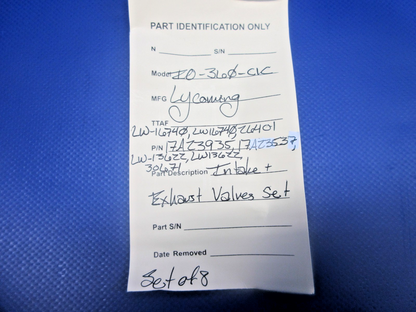 PART IDENTIFICATION ONLY
N ________ S/N ________
Model IO-360-C1C
MFG Lycoming
TTAF
LW-16740, LW16740, 26401
P/N 17A23935, 17A23537,
LW-13622, LW13622
30671
Part Description Intake +
Exhaust Valves Set
Part S/N ________
Date Removed ________
Set of 8